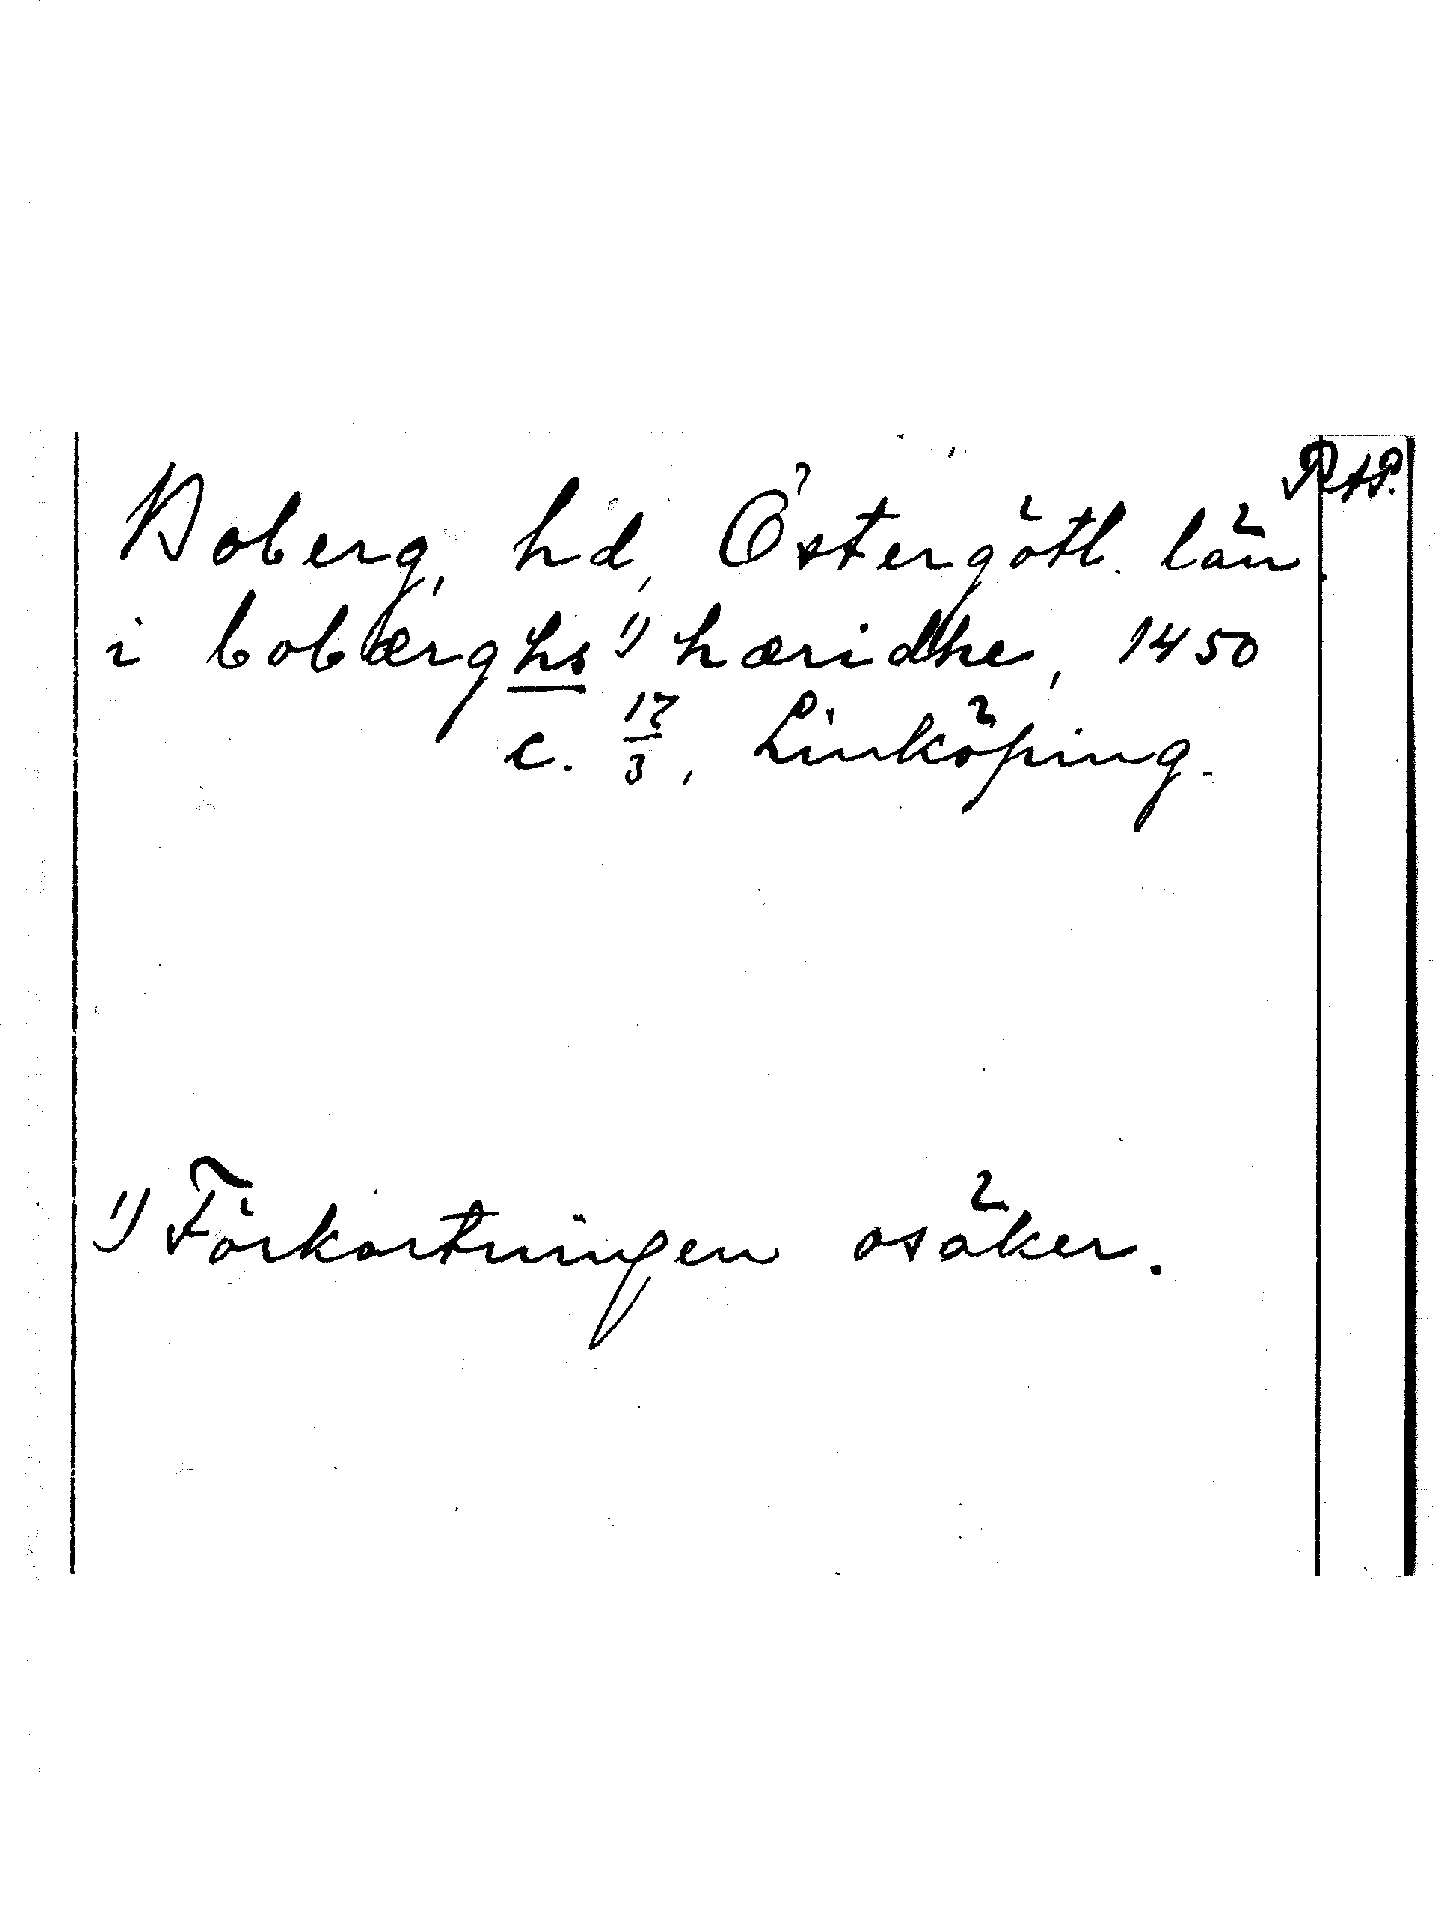 RAP.
Boberg, hd, Östergötl. län.
i bobærghs ¹⁾ hæridhe, 1450
c. 17/3, Linköping.
¹⁾ Förkortningen osäker.